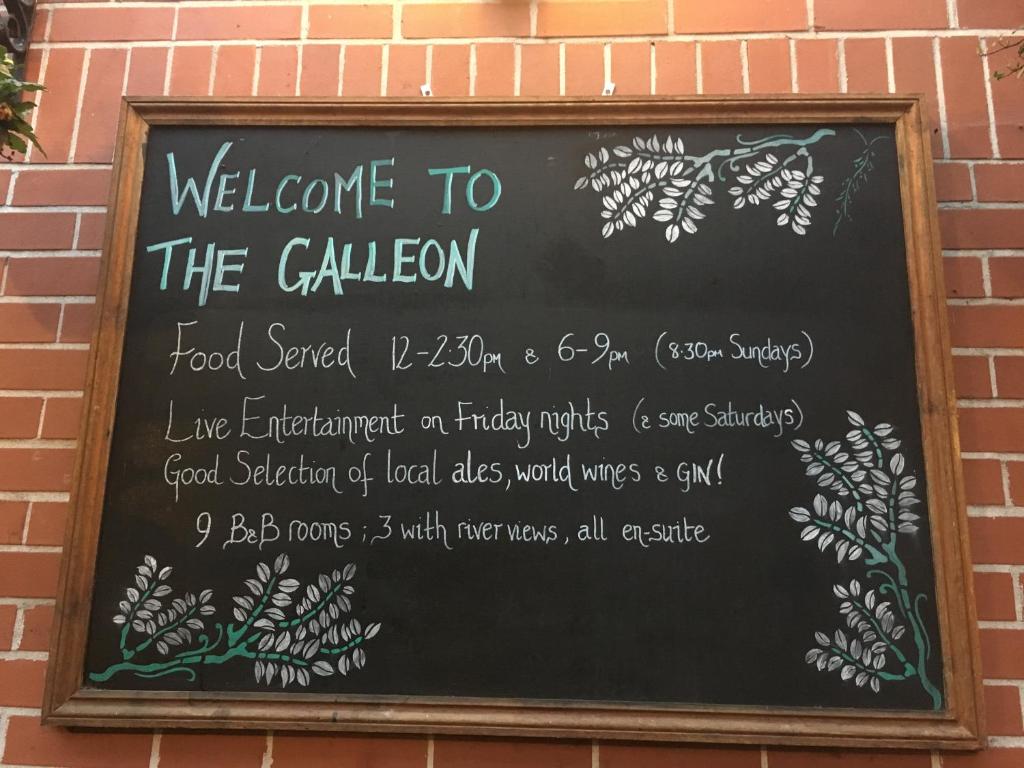 WELCOME TO
THE GALLEON
Food Served 12-2.30pm & 6-9pm (8.30pm Sundays)
Live Entertainment on Friday nights (& some Saturdays)
Good Selection of local ales, world wines & GIN!
9 B&B rooms ; 3 with river views, all en-suite